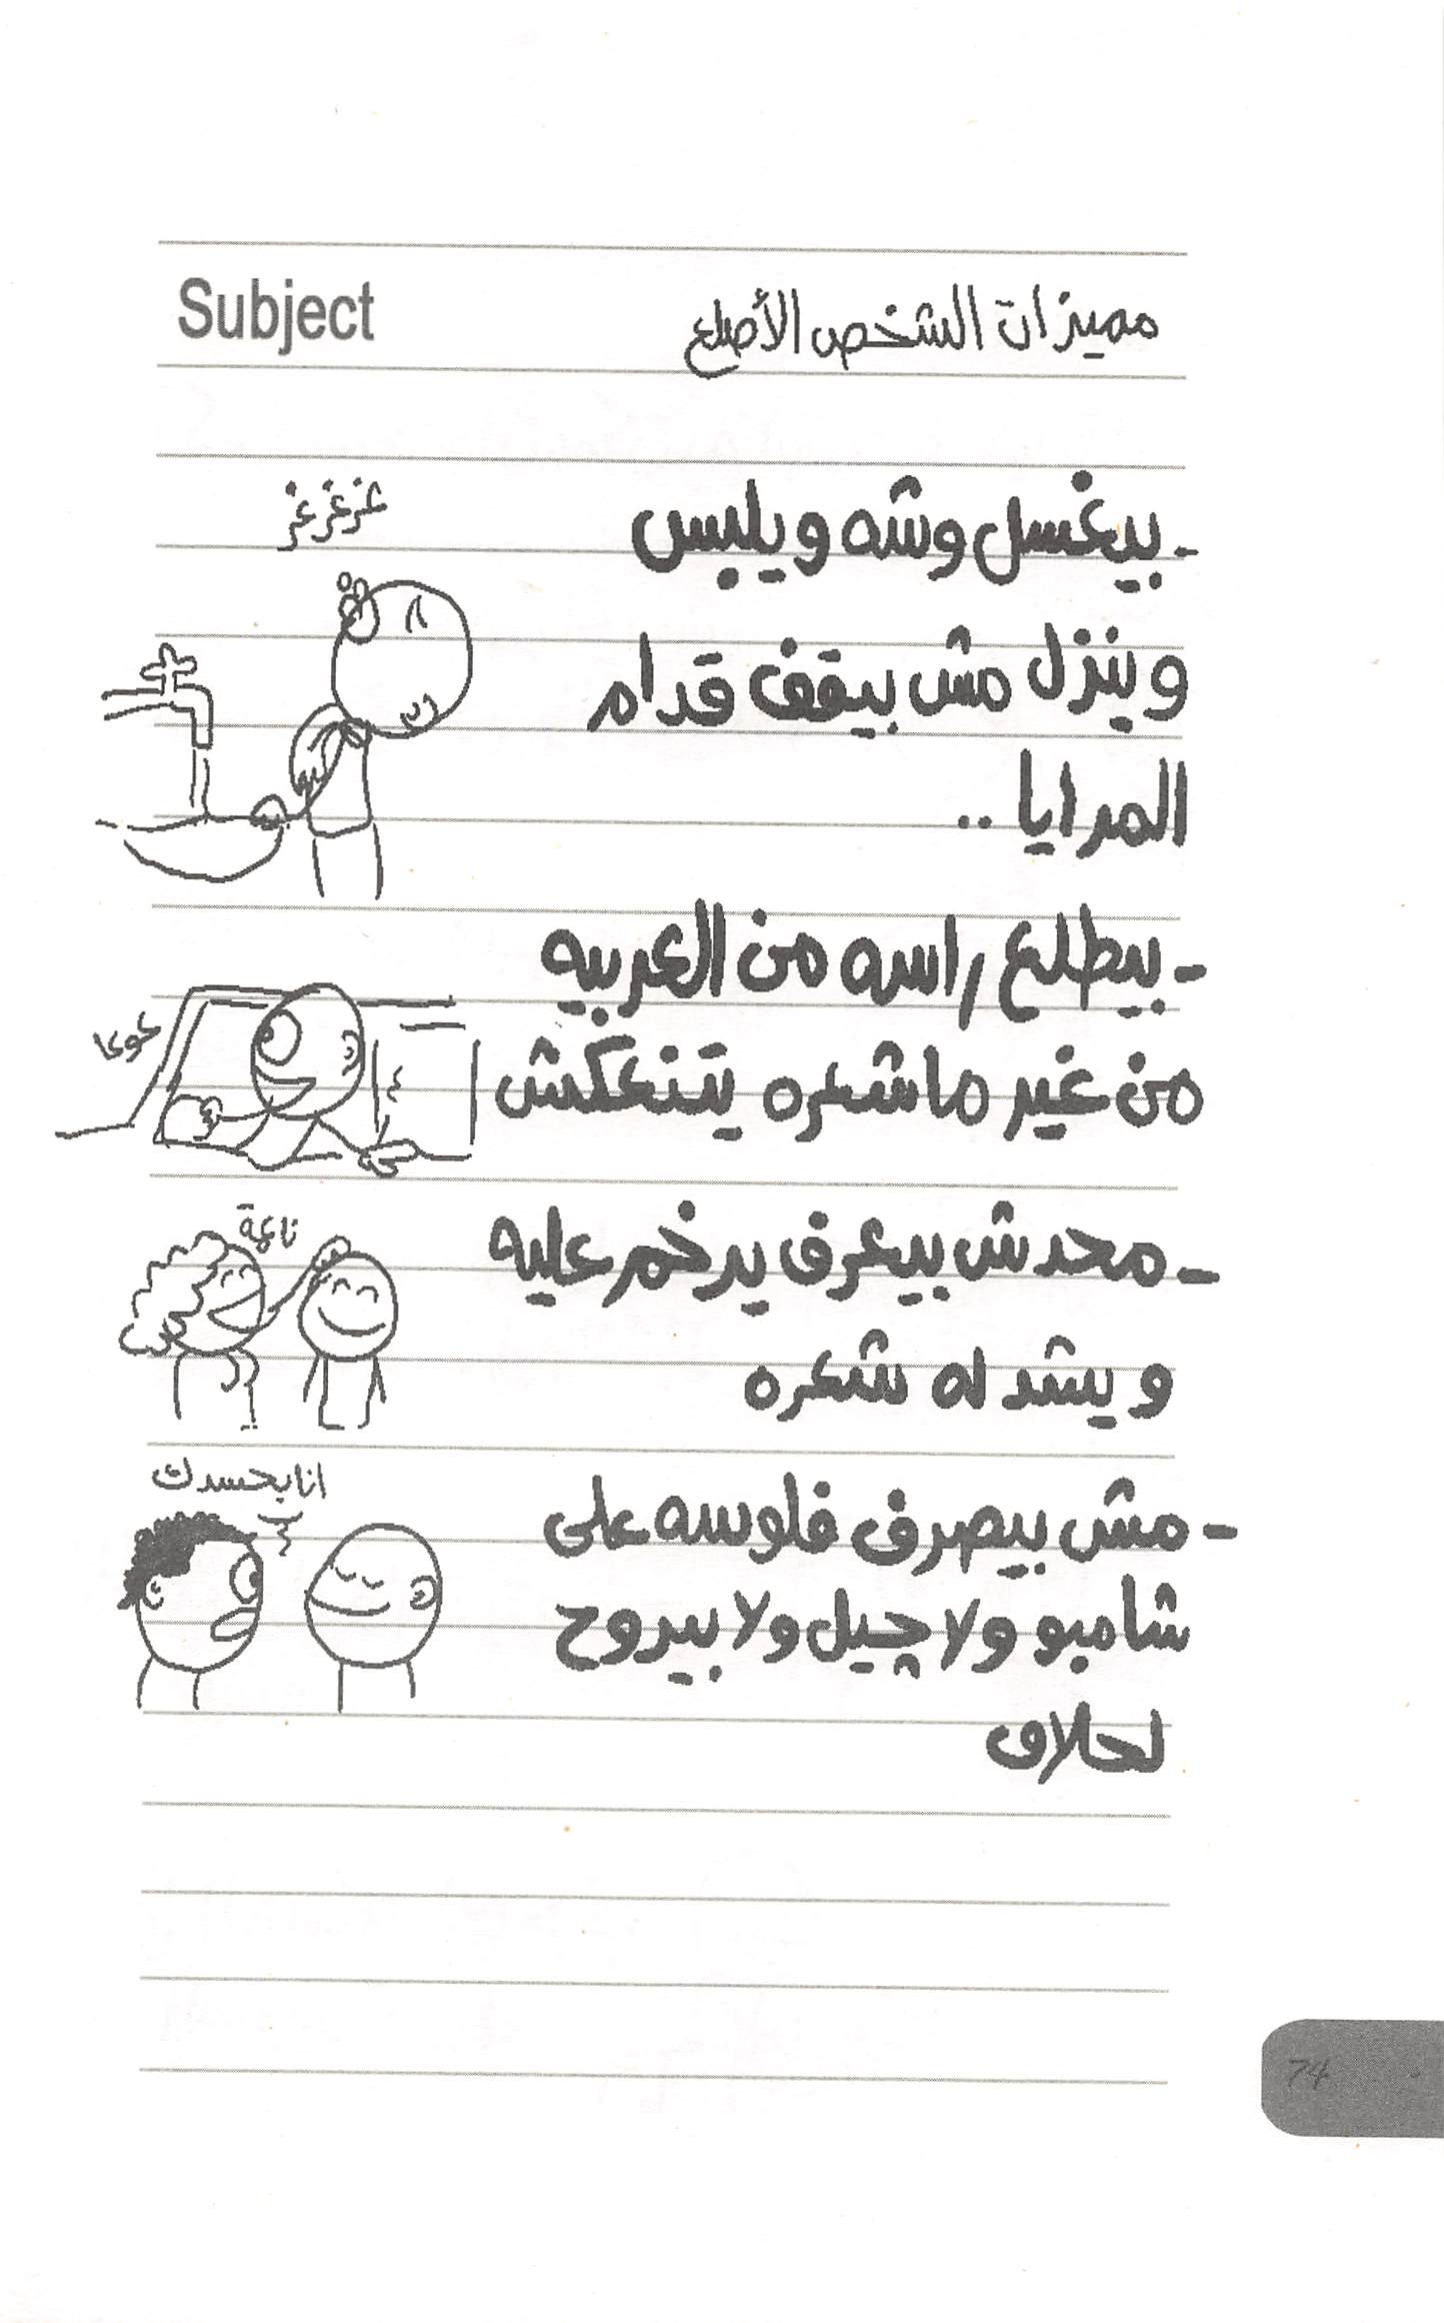 Subject
مميزات الشخص الأصلع
- بيغسل وشه ويلبس
وينزل مش بيقف قدام
المرايا ..
غرغرغر
- بيطلع راسه من العربيه
من غير ما شعره يتنعكش
- محدش بيعرف يرخم عليه
ويشد له شعره
ناعمة
- مش بيصرف فلوسه على
شامبو ولا چيل ولا بيروح
لحلاق
انا بحسدك
74